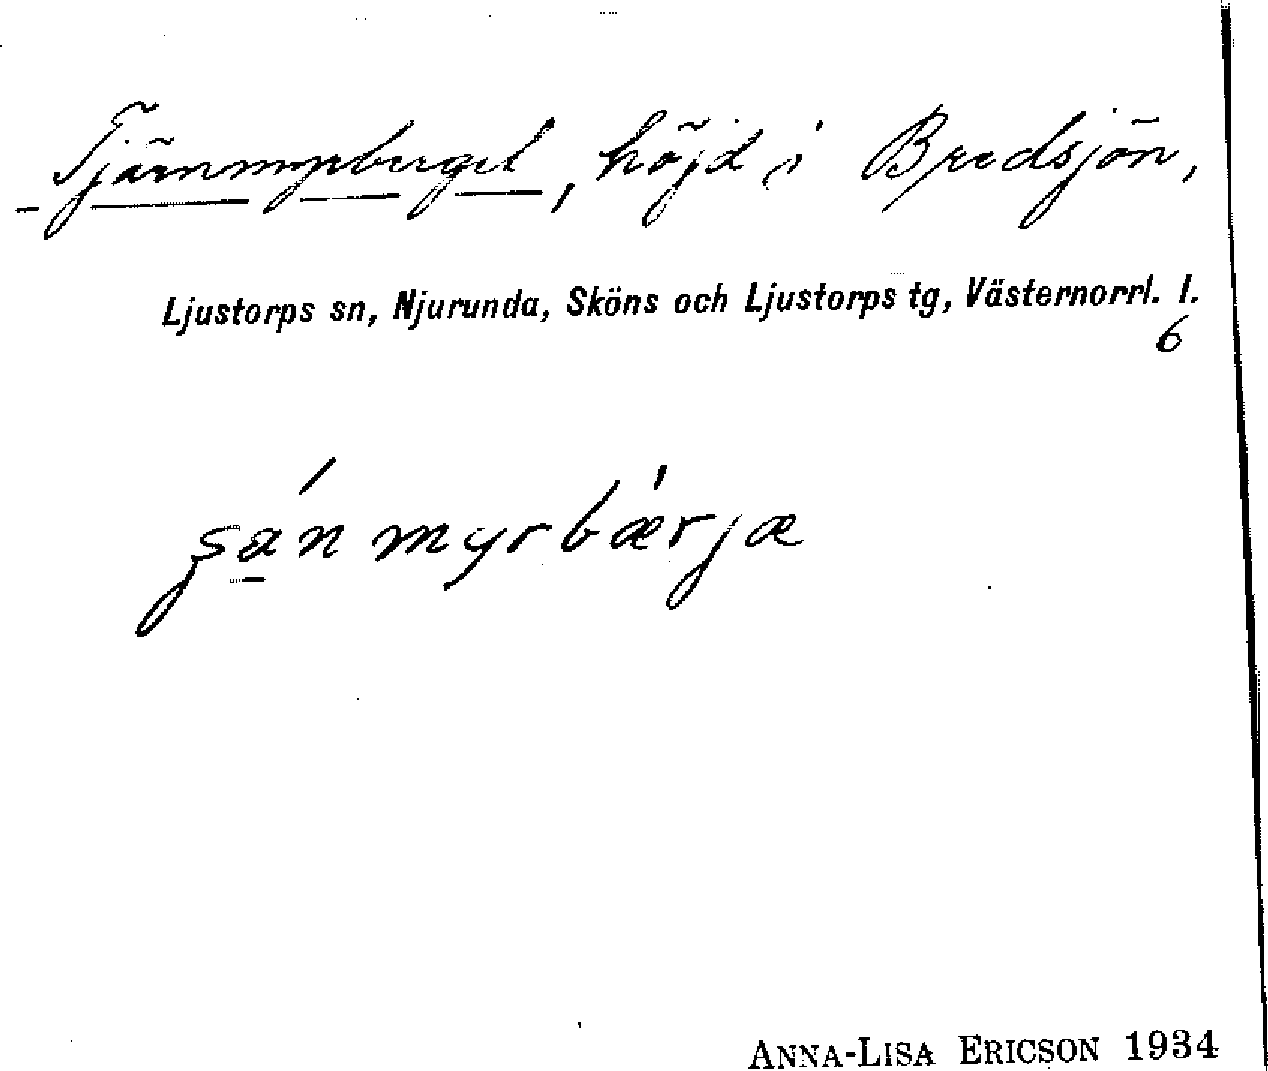 Tjärnmyrberget, höjd i Bredsjön,
Ljustorps sn, Njurunda, Sköns och Ljustorps tg, Västernorrl. l.
6
ʂa̱´n myrbæ´rjæ
ANNA-LISA ERICSON 1934